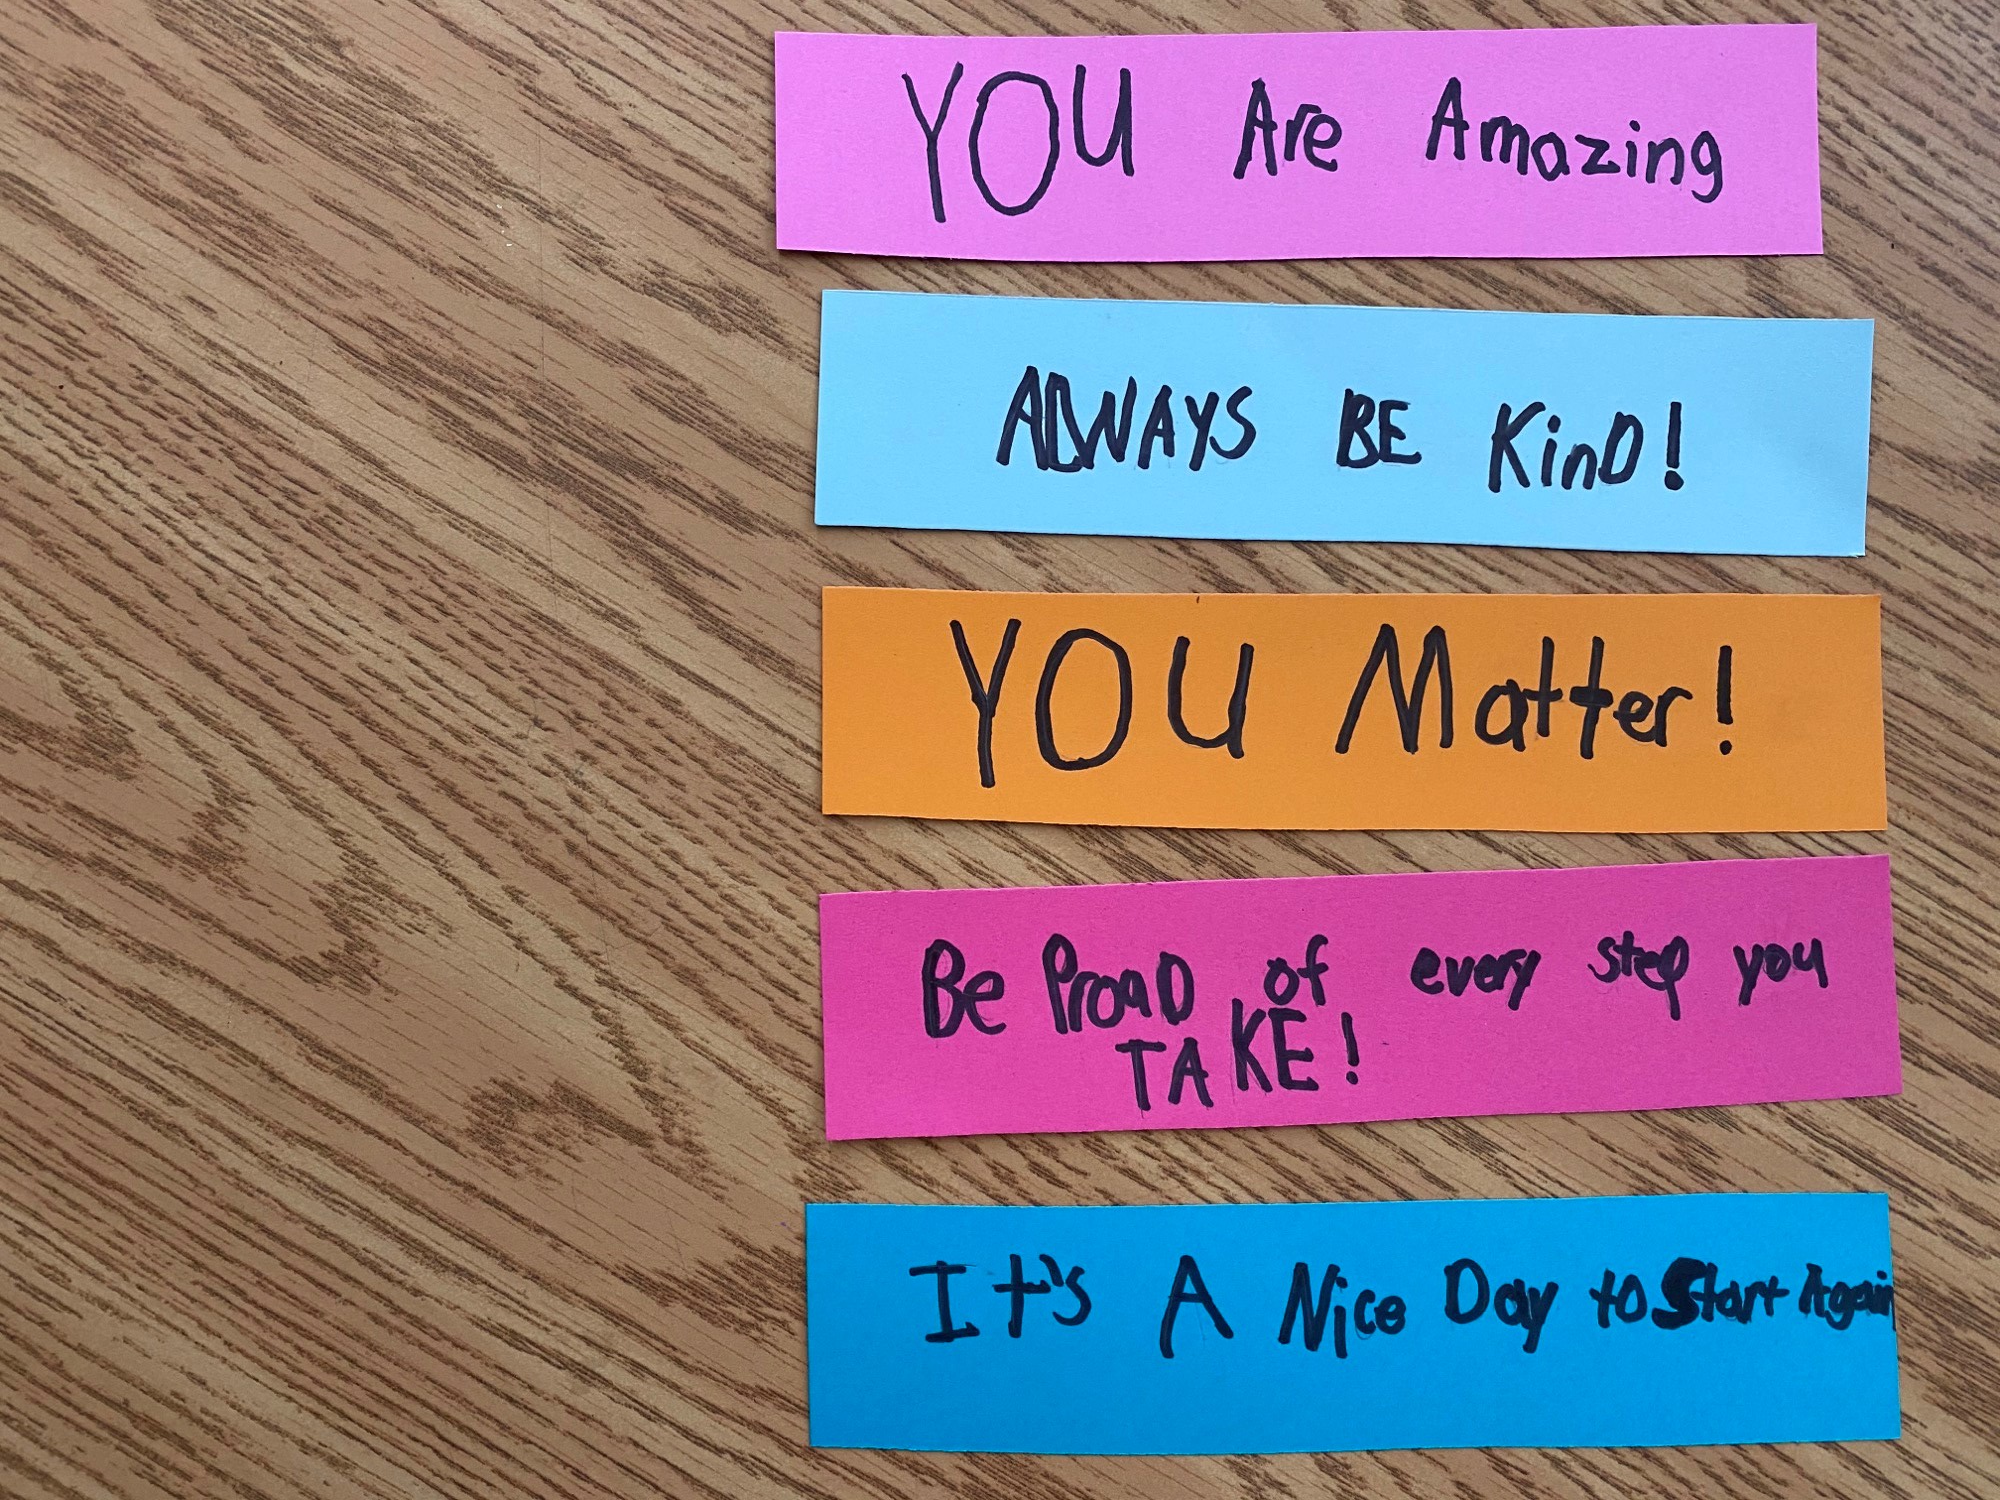 YOU Are Amazing
ALWAYS BE KinD!
YOU Matter!
Be ProuD of every step you
TAKE!
It's A Nice Day to Start Again